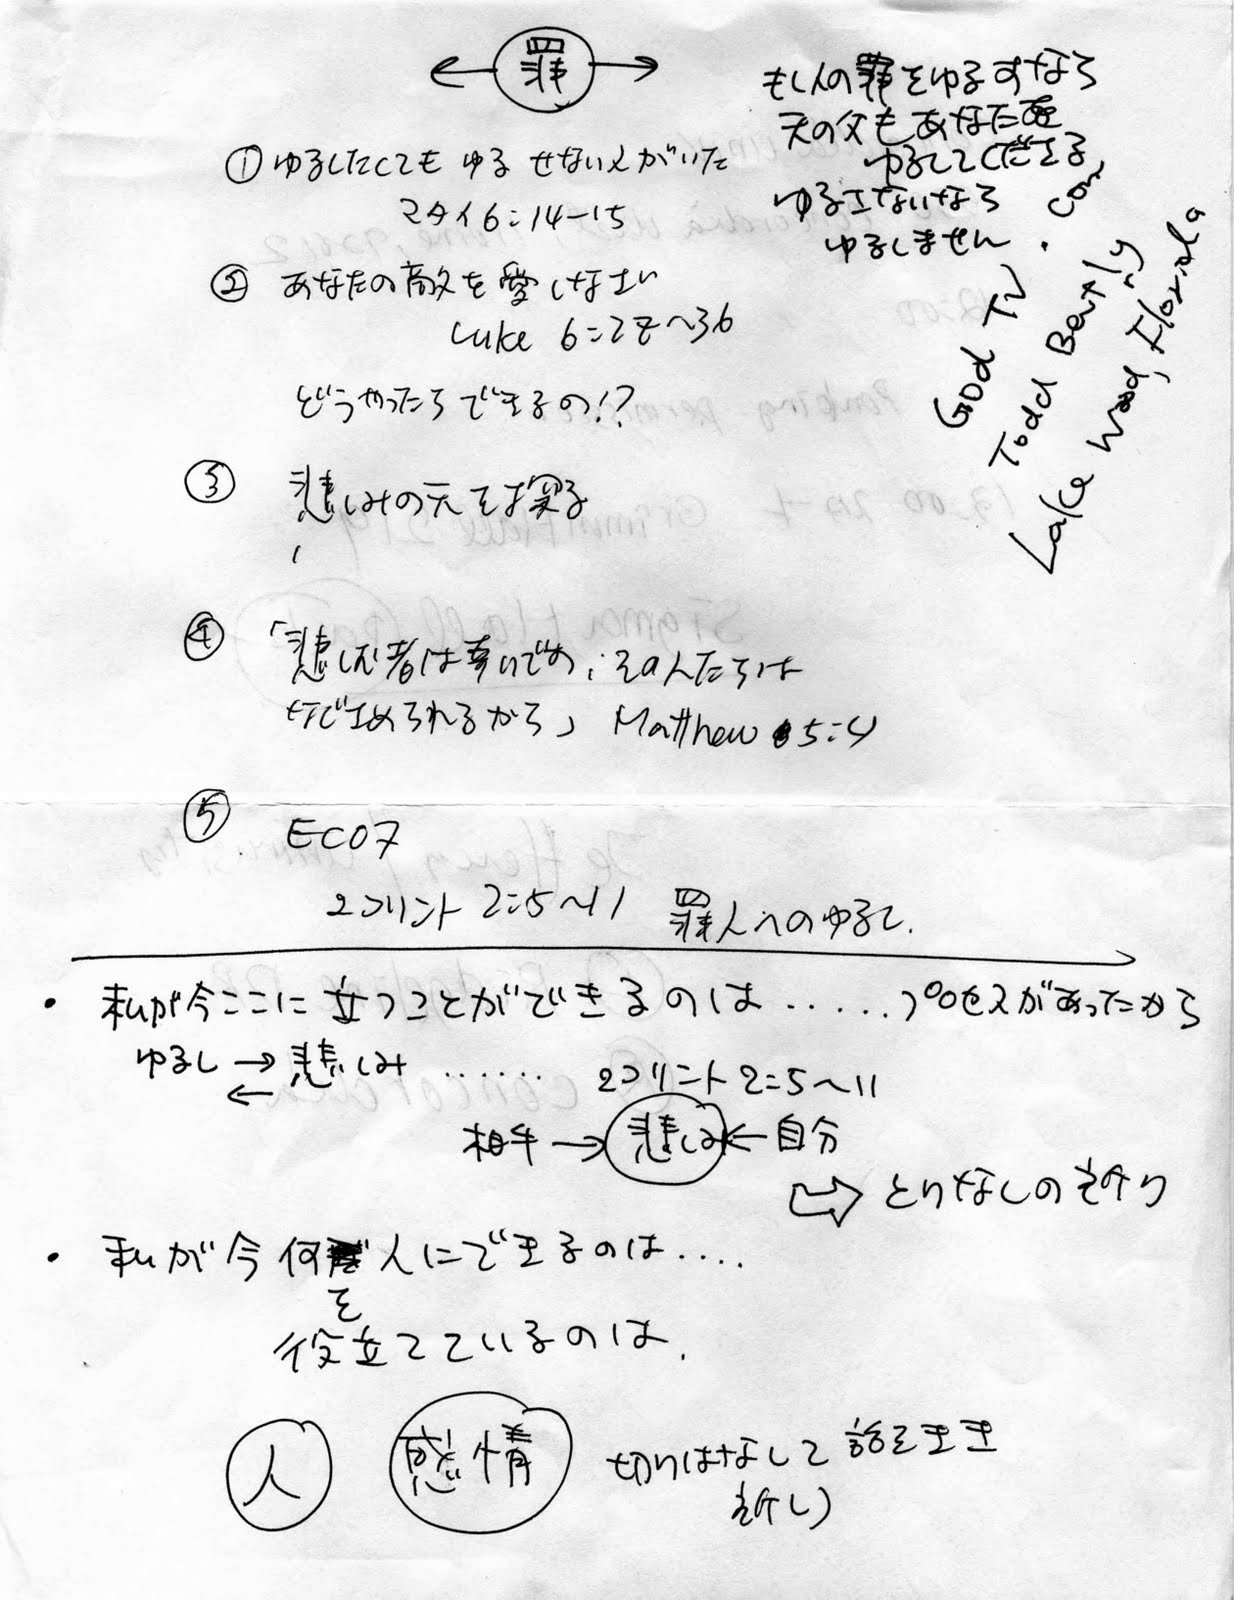 罪
もし人の罪をゆるすなら
天の父もあなたを
ゆるしてくださる
ゆるさないなら
ゆるしません
① ゆるしたくても ゆるせない人がいた
マタイ6:14-15
② あなたの敵を愛しなさい
Luke 6:27~36
どうやったらできるの!?
God TV.com
Todd Bently
Lake Wood, Florida
③ 悲しみの元を探る
④ 「悲しむ者は幸いです、その人たちは
なぐさめられるから」 Matthew 5:4
⑤ EC07
2コリント 2:5~11 罪人へのゆるし.
・私が今ここに立つことができるのは..... プロセスがあったから
ゆるし → 悲しみ ...... 2コリント2:5~11
←
相手 → 悲しみ ← 自分
⇨ とりなしの祈り
・私が今何 人にできるのは....
を
役立てているのは.
人 感情 切りはなして 話をきき
祈し)